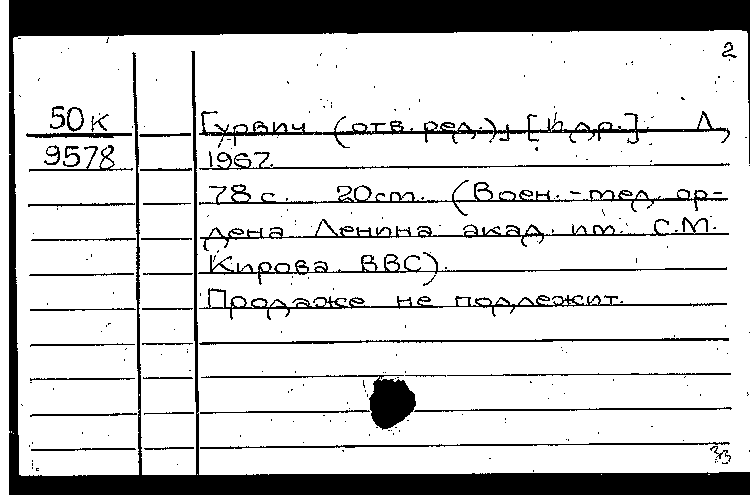 2
50к Гурвич (отв. ред.)] [и др.] Л,
9578 1967.
78 с. 20см. (Воен.-мед. ор-
дена Ленина акад. им. С.М.
Кирова. ВВС).
Продаже не подлежит.
33